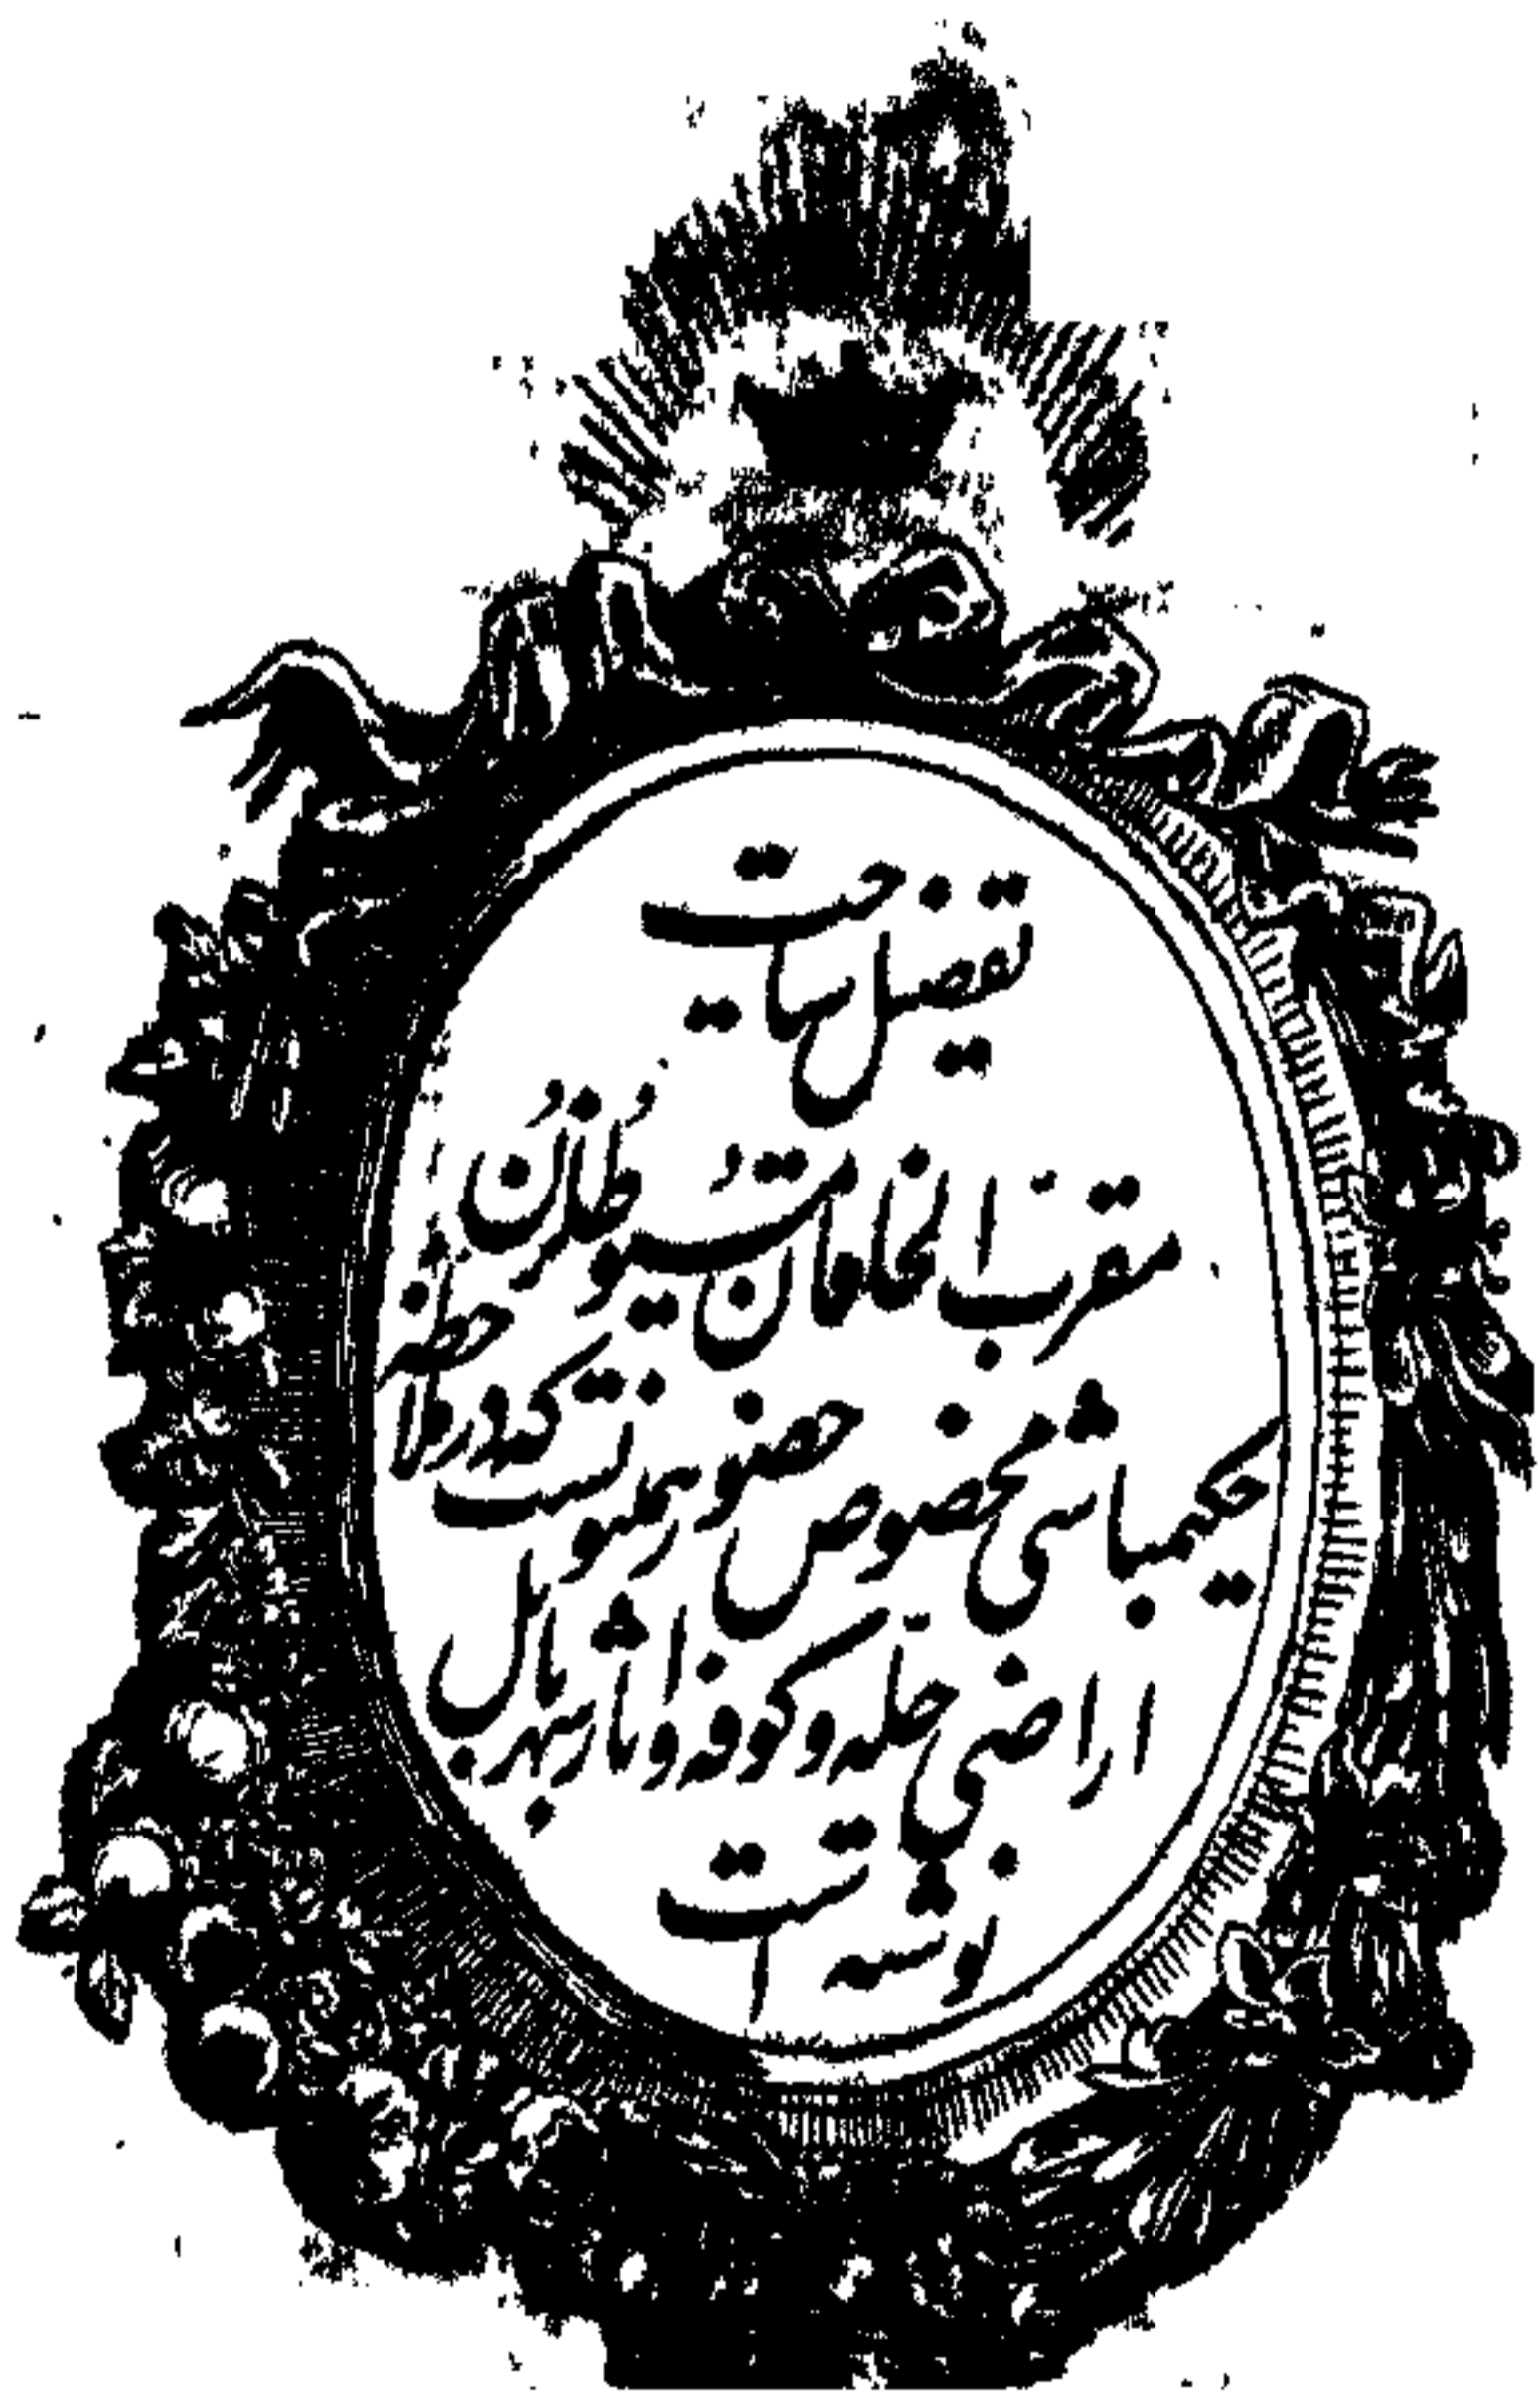 تفصیل سیاحت
مقرب الخاقان مسیو طولوزان
حکیمباشی مخصوص حضور همایونست که در
اراضی حله و کوفه و آثار شهر بابل
نوشته است